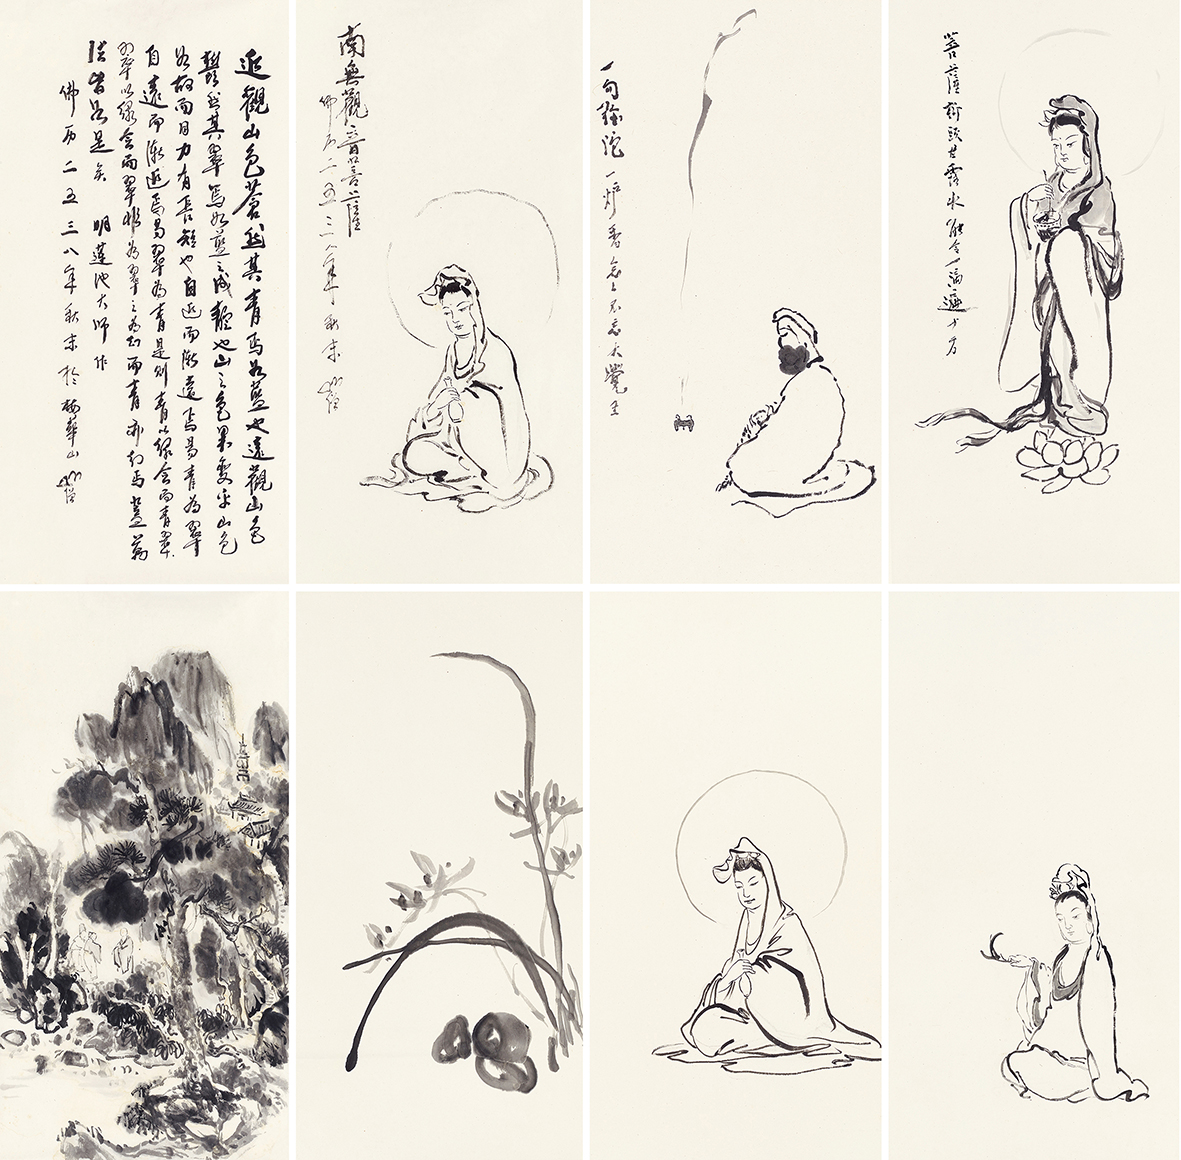 近觀山色蒼然其青焉如藍也遠觀山色
鬱然其翠焉如藍之成靛也山之色果變乎山色
如故而目力有長短也自近而漸遠焉易青為翠
自遠而漸近焉易翠為青是則青以緣會而青翠
以緣會而翠翠之為幻而青亦幻焉蓋萬
法皆如是矣 明蓮池大師作
佛历二五三八年秋末於梅華山
南無觀音菩薩
佛历二五三八年秋末
一句弥陀一炉香念念不忘大覺王
菩薩柳頭甘露水能令一滴遍十方